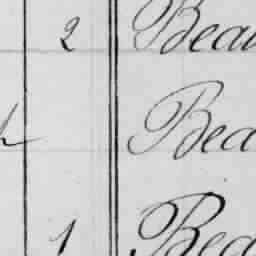 2 Beau
Bea
1 Bea